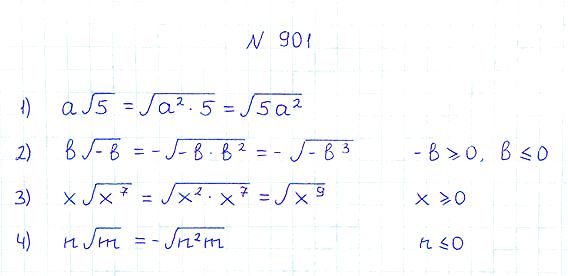 N 901
1) a√5 = √(a² · 5) = √(5a²)
2) в√(-в) = -√(-в · в²) = - √(-в³) -в ≥ 0, в ≤ 0
3) x√(x⁷) = √(x² · x⁷) = √(x⁹) x ≥ 0
4) n√m = -√(n²m) n ≤ 0